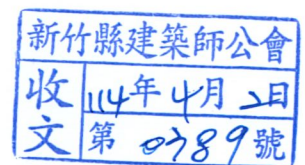 新竹縣建築師公會
收文
114年4月2日
第0789號